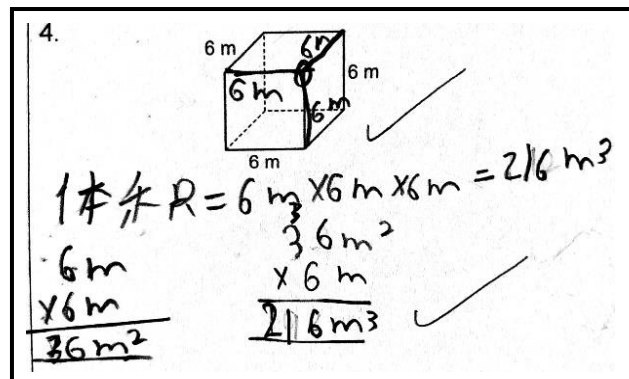 4.
6 m
6m
6 m
6m
6m
6 m
体积 = 6 m × 6 m × 6 m = 216 m³
6 m
× 6 m
36 m²
36 m²
× 6 m
216 m³